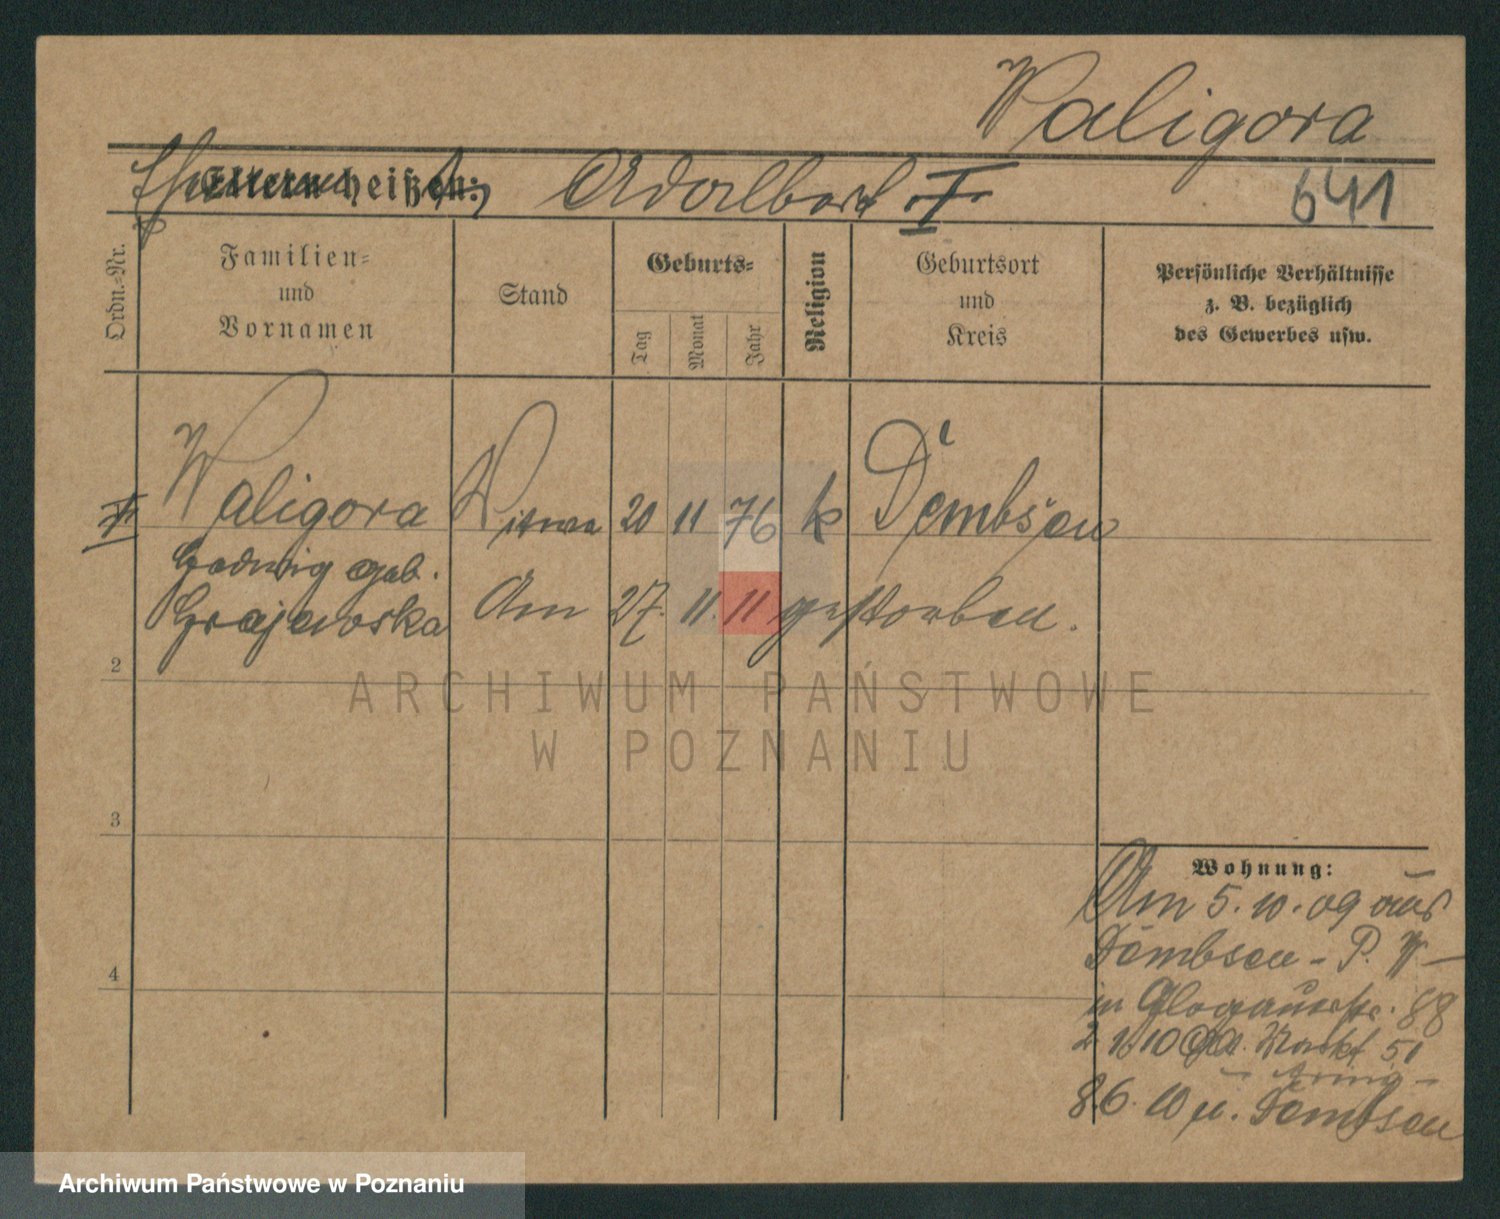 Waligora
Eltern heißen: Adalbert †
641
Ordn.=Nr.
Familien=
und
Vornamen
Stand
Geburts=
Tag
Monat
Jahr
Religion
Geburtsort
und
Kreis
Persönliche Verhältnisse
z. B. bezüglich
des Gewerbes usw.
Waligora Witwe 20 11 76 k Dembsen
Hedwig geb.
Grajewska Am 27. 11. 11 gestorben.
2
3
4
Wohnung:
Am 5. 10. 09 aus
Dembsen - P. W -
in Glogauerstr. 88
2 10 Markt 51
8 6. 10 u. Dembsen
ARCHIWUM PAŃSTWOWE
W POZNANIU
Archiwum Państwowe w Poznaniu